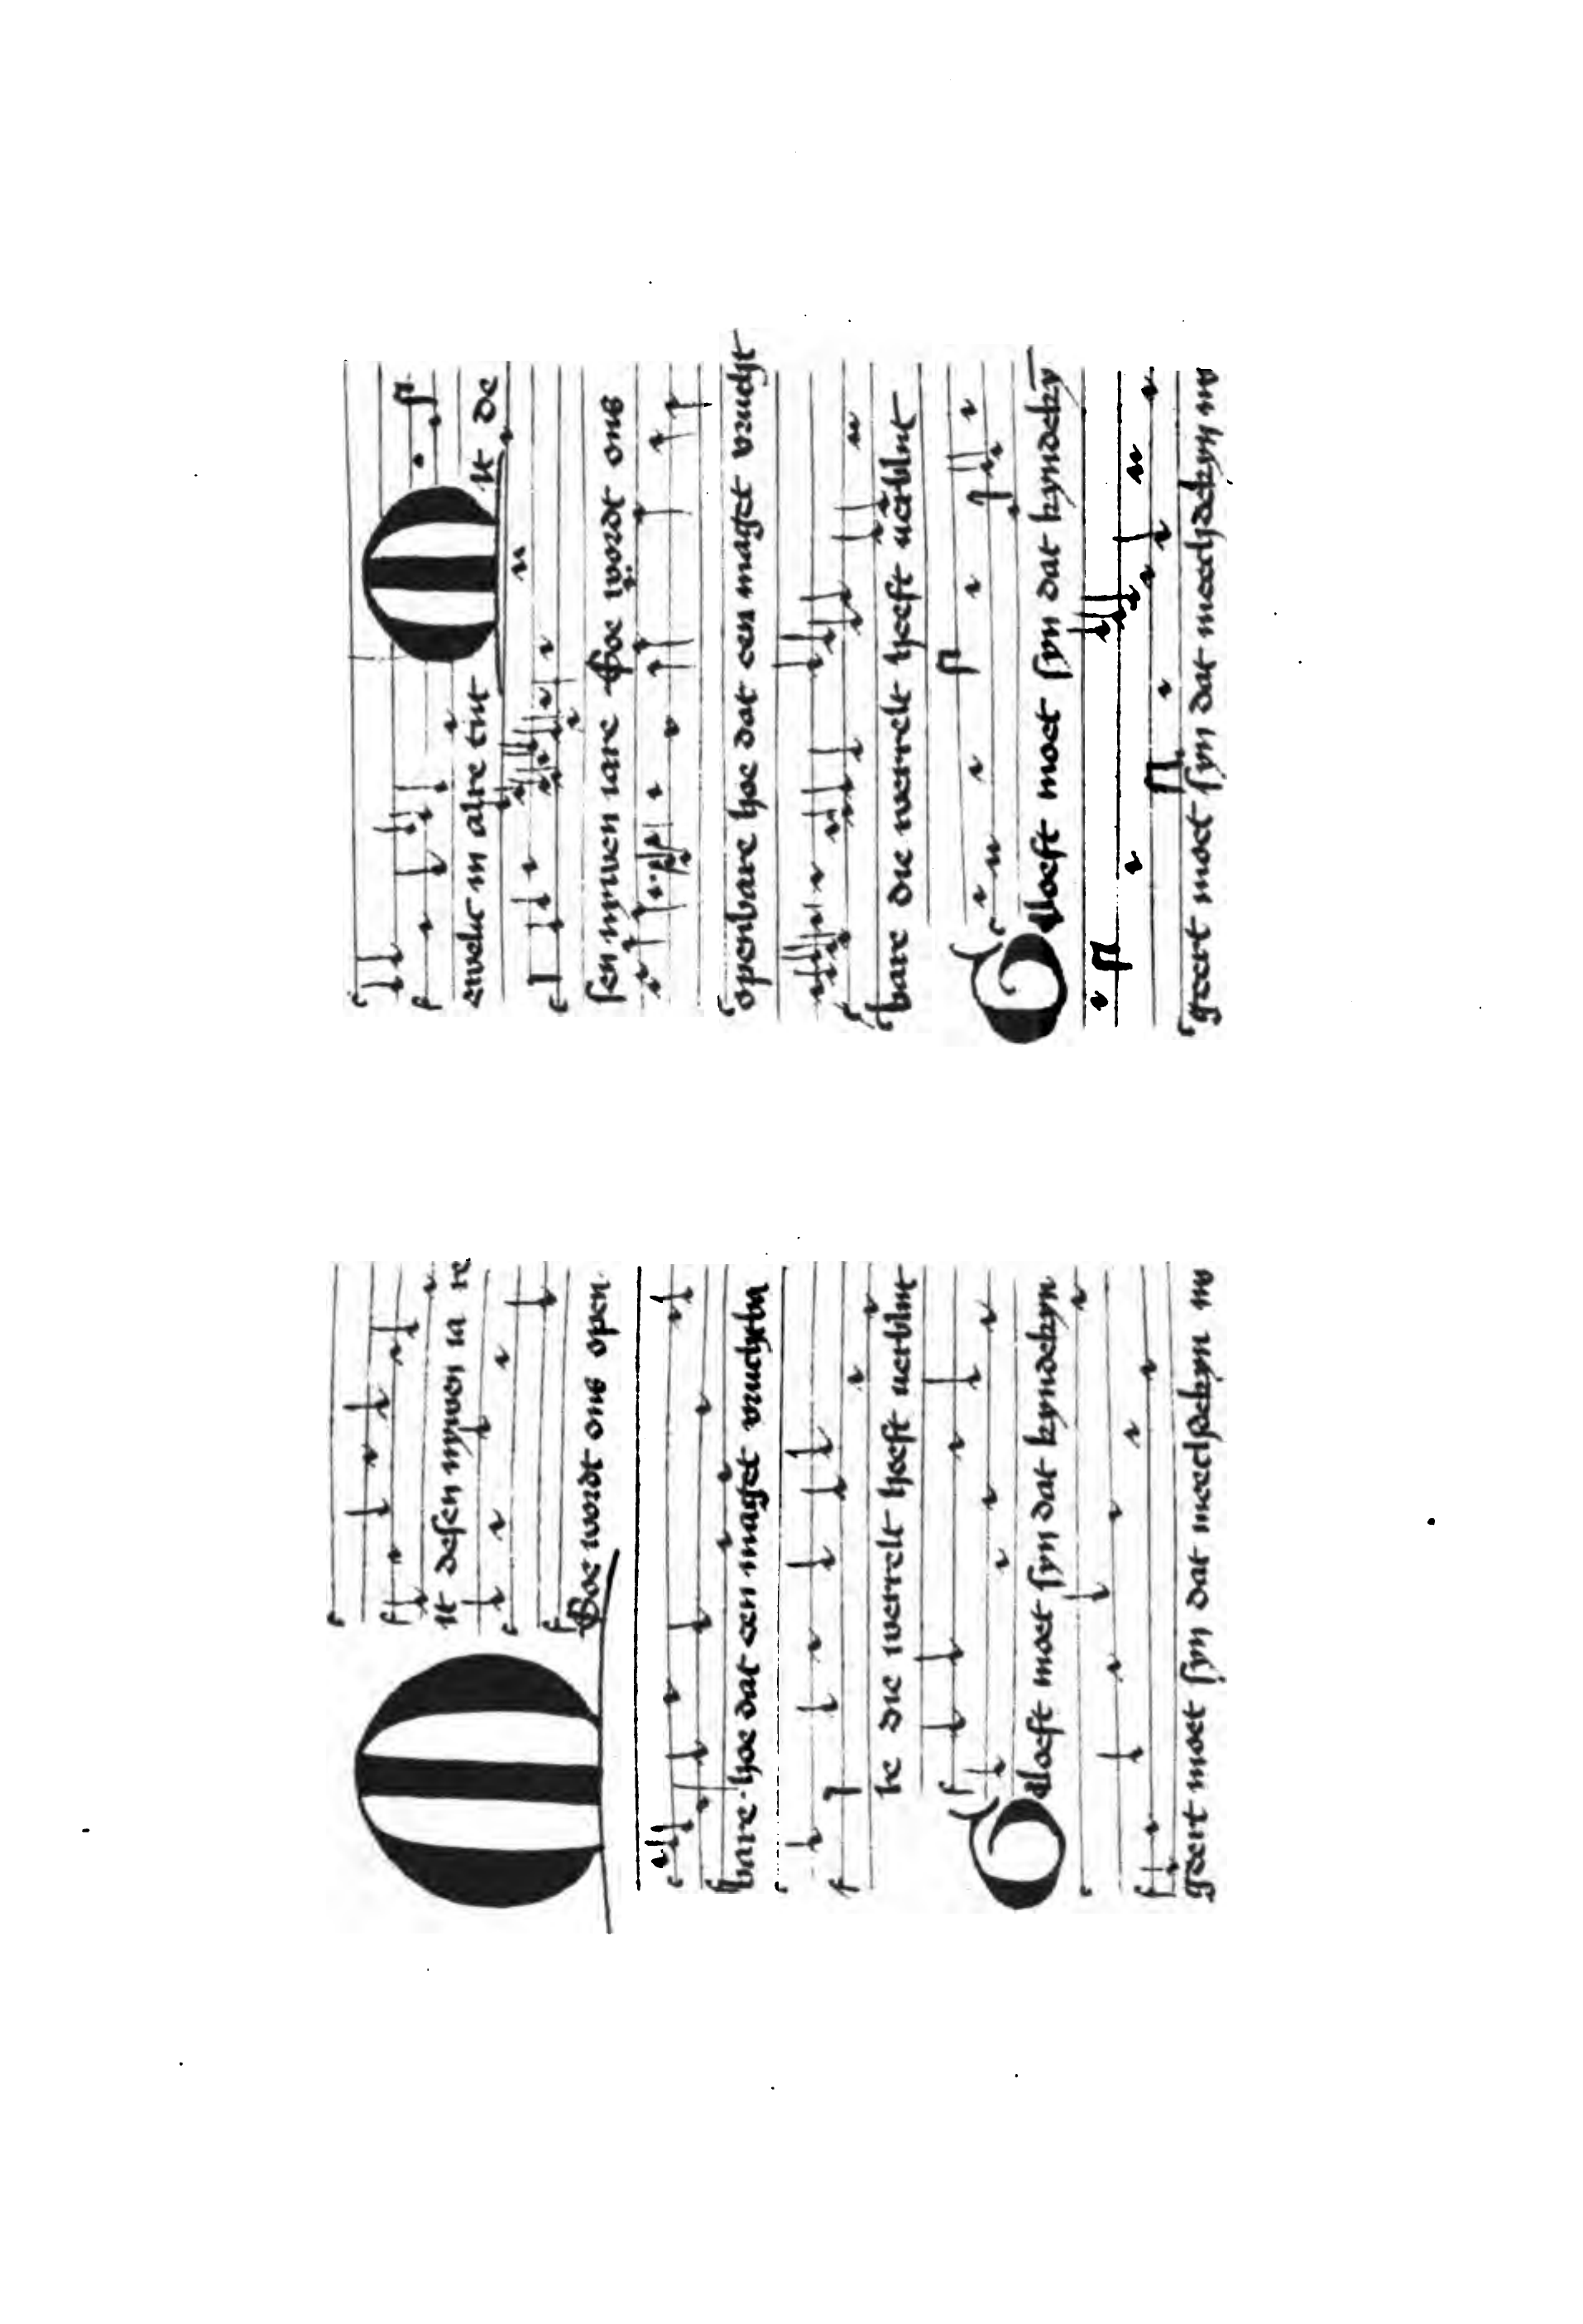 Vt desen nywen ia re
Soe wordt ons open
bare hoe dat een maget vruchtba
re die werelt heeft verblint
Gheloeft moet syn dat kyndekyn
geert moet syn dat meechdekyn m
Vt de
ewelic in alre tint
sen nywen iare Soe wordt ons
openbare hoe dat een maget vrucht
bare die werelt heeft verblint
Gheloeft moet syn dat kyndeky
geert moet syn dat meechdekyn m